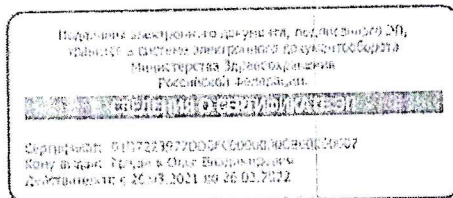 Подлинник электронного документа, подписанного ЭП,
хранится в системе электронного документооборота
Министерства Здравоохранения
Российской Федерации.
СВЕДЕНИЯ О СЕРТИФИКАТЕ ЭП
Сертификат:
Кому выдан: Олег Владимирович
Действителен: с 26.03.2021 по 26.03.2022